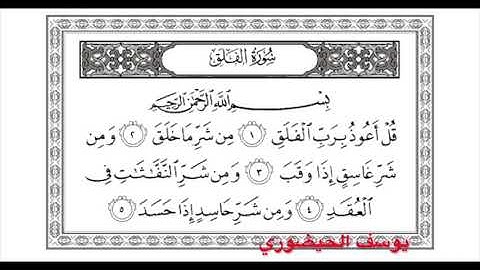 سُورَةُ الْفَلَقِ
بِسْمِ اللَّهِ الرَّحْمَٰنِ الرَّحِيمِ
قُلْ أَعُوذُ بِرَبِّ الْفَلَقِ ١ مِن شَرِّ مَا خَلَقَ ٢ وَمِن
شَرِّ غَاسِقٍ إِذَا وَقَبَ ٣ وَمِن شَرِّ النَّفَّاثَاتِ فِي
الْعُقَدِ ٤ وَمِن شَرِّ حَاسِدٍ إِذَا حَسَدَ ٥
يوسف الحيضوري